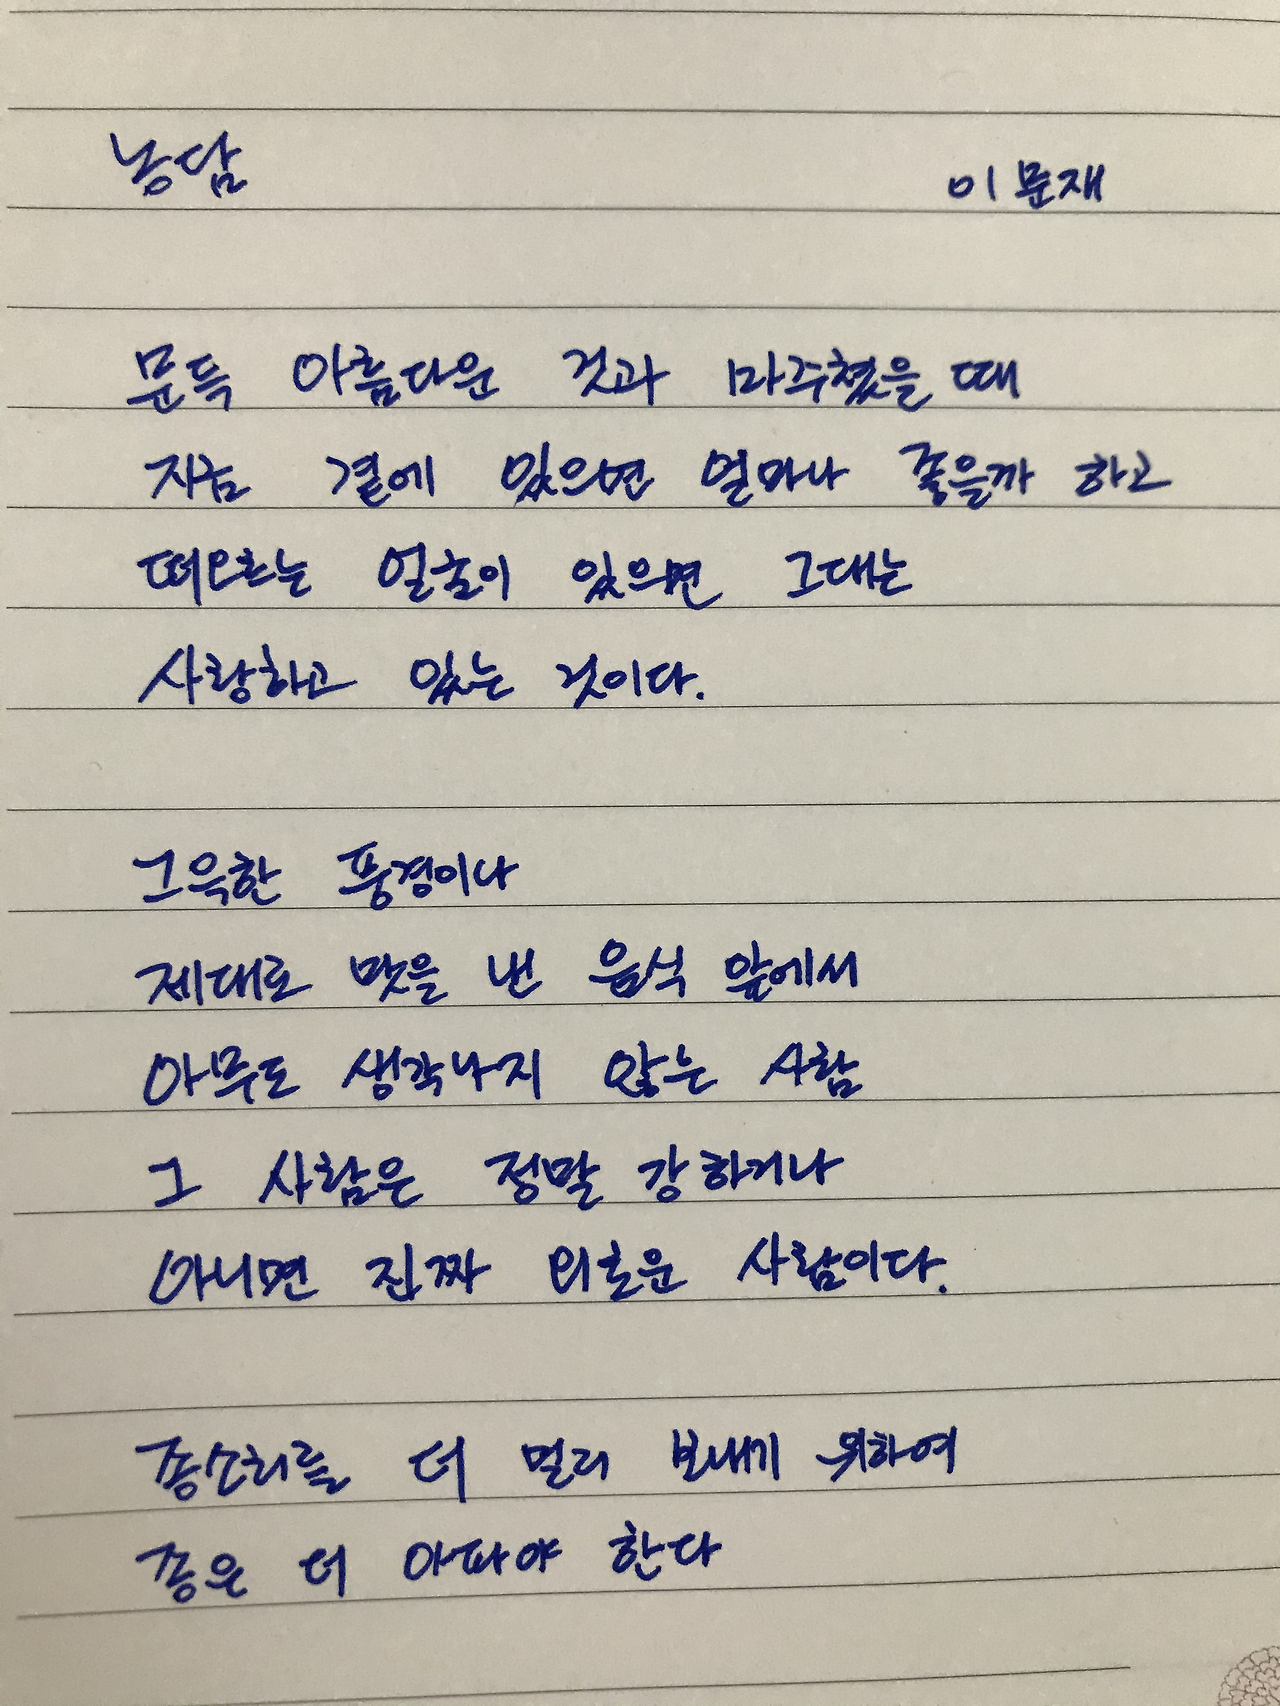 농담
이문재
문득 아름다운 것과 마주쳤을 때
지금 곁에 있으면 얼마나 좋을까 하고
떠오르는 얼굴이 있으면 그대는
사랑하고 있는 것이다.
그윽한 풍경이나
제대로 맛을 낸 음식 앞에서
아무도 생각나지 않는 사람
그 사람은 정말 강하거나
아니면 진짜 외로운 사람이다.
종소리를 더 멀리 보내기 위하여
종은 더 아파야 한다